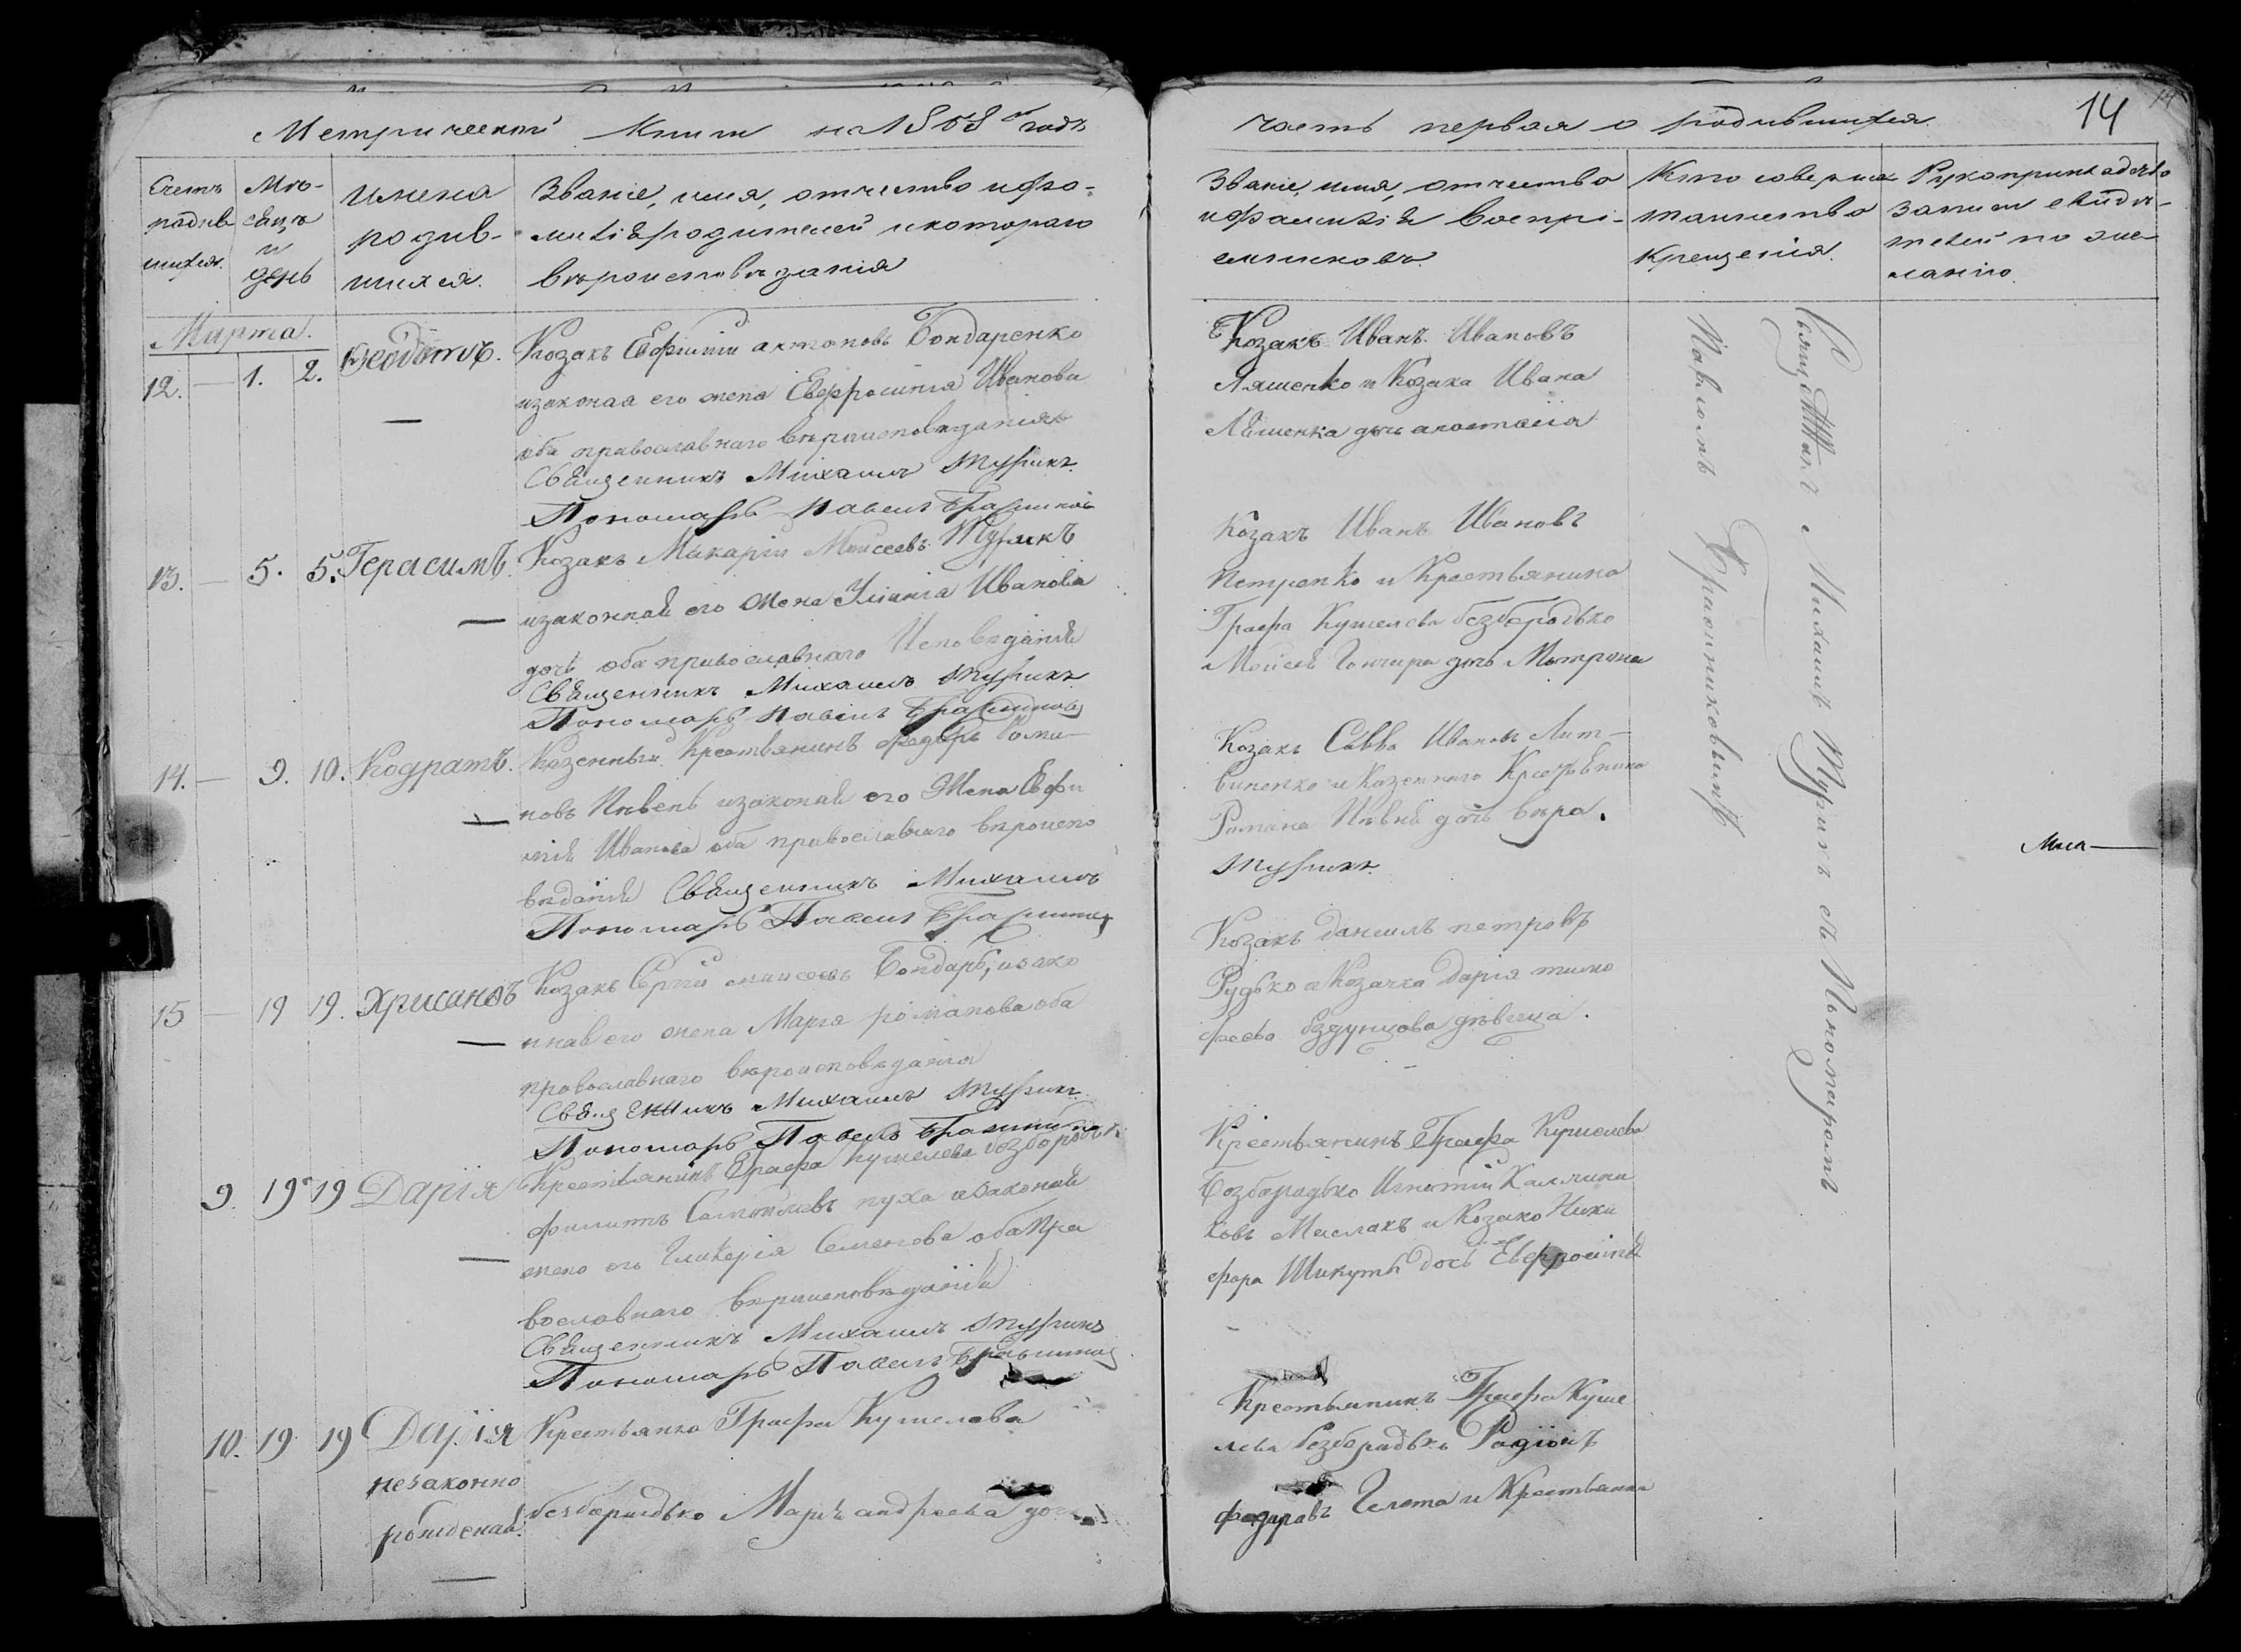 Метрической Книги на 1858 ой годъ
Счетъ
родив
шихся.
Мѣ-
сяцъ
и
день
имена
родив-
шихся.
Званіе, имя, отчество и фа-
миліѣ родителей и котораго
вѣроисповѣданія
Марта.
12. — 1. 2. Ѳеодотъ.
Козакъ Евфимій антоновъ Бондаренко
изаконая его жена Евфросинія Иванова
оба православнаго вѣроисповѣданія
Священникъ Михаилъ Турикъ
Пономарь Павелъ
13. — 5. 5. Герасимъ.
Козакъ Макарій Моисеевъ Турикъ
изаконная его жена Иванова
дочь оба православнаго Исповѣданія
Священникъ Михаилъ Турикъ
Пономарь Павелъ
14. — 9. 10. Кодратъ.
Казенный Крестьянинъ Федоръ Рома-
новъ Пѣвень изаконая его Жена Евфи
мія Иванова оба православнаго вѣроиспо
вѣданія Священникъ Михаилъ
Пономарь Павелъ
15 — 19 19. Хрисанѳъ
Козакъ Сергій моисеевъ Бондарь, изако
ная его жена Марія романова оба
православнаго вѣроисповѣданія
Священникъ Михаилъ Турикъ
Пономарь Павелъ
9. 19 19 Дарія
Крестьянинъ Графа Кушелева безбородька
филипъ пуха изаконая
жена его Гликерія Семенова оба Пра
вославнаго вѣроисповѣданія
Священникъ Михаилъ Турикъ
Пономарь Павелъ
10. 19 19 Дарія
незаконно
рожденая.
Крестьянка Графа Кушелева
безбородько Марія андреева
14
часть первая о родившихся.
Званіе, имя, отчество
и фамиліѣ воспрі-
емниковъ.
Кто соверша
таинство
крещенія.
Рукоприкладство
записи свидѣ-
телей по же-
ланію.
Козакъ Иванъ Ивановъ
Ляшенко и Козака Ивана
Ляшенка дочь анастасія
Козакъ Иванъ Ивановъ
Петренко и Крестьянина
Графа Кушелева безбородько
Моисея Гончара дочь Матрона
Козакъ Савва Ивановъ Лит-
виненко и Казеннаго Крестьянина
Романа Пѣвня дочь вѣра.
Турикъ
Козакъ данiилъ петровъ
Рудько и Козачка Дарія тимо
феева дѣвица.
Крестьянинъ Графа Кушелева
Безбородько Игнатій Калини
ковъ Маслакъ и Козака Ники
фора Шикуты дочь Евфросинія
Крестьянинъ Графа Куше
лева безбородька Родіонъ
федоровъ Гелета и Крестьянка
Священникъ Михаилъ Турикъ съ Пономаремъ
Павломъ